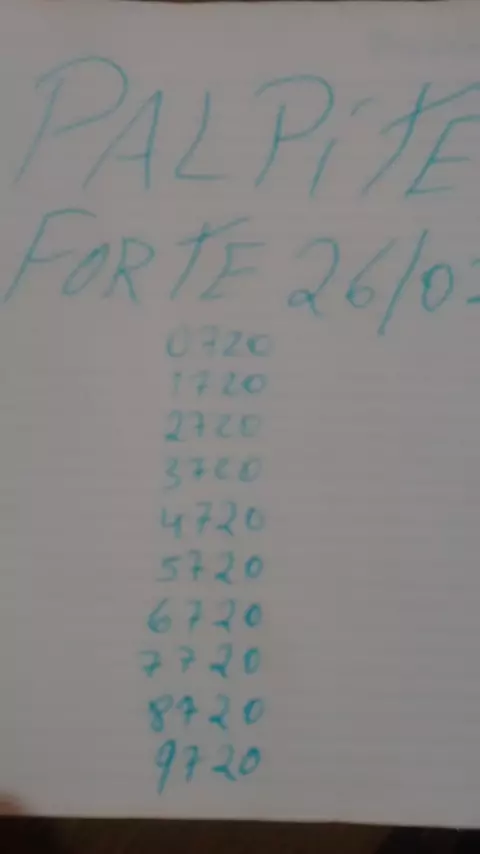 PALPITE
FORTE 26/0
0720
1720
2720
3720
4720
5720
6720
7720
8720
9720